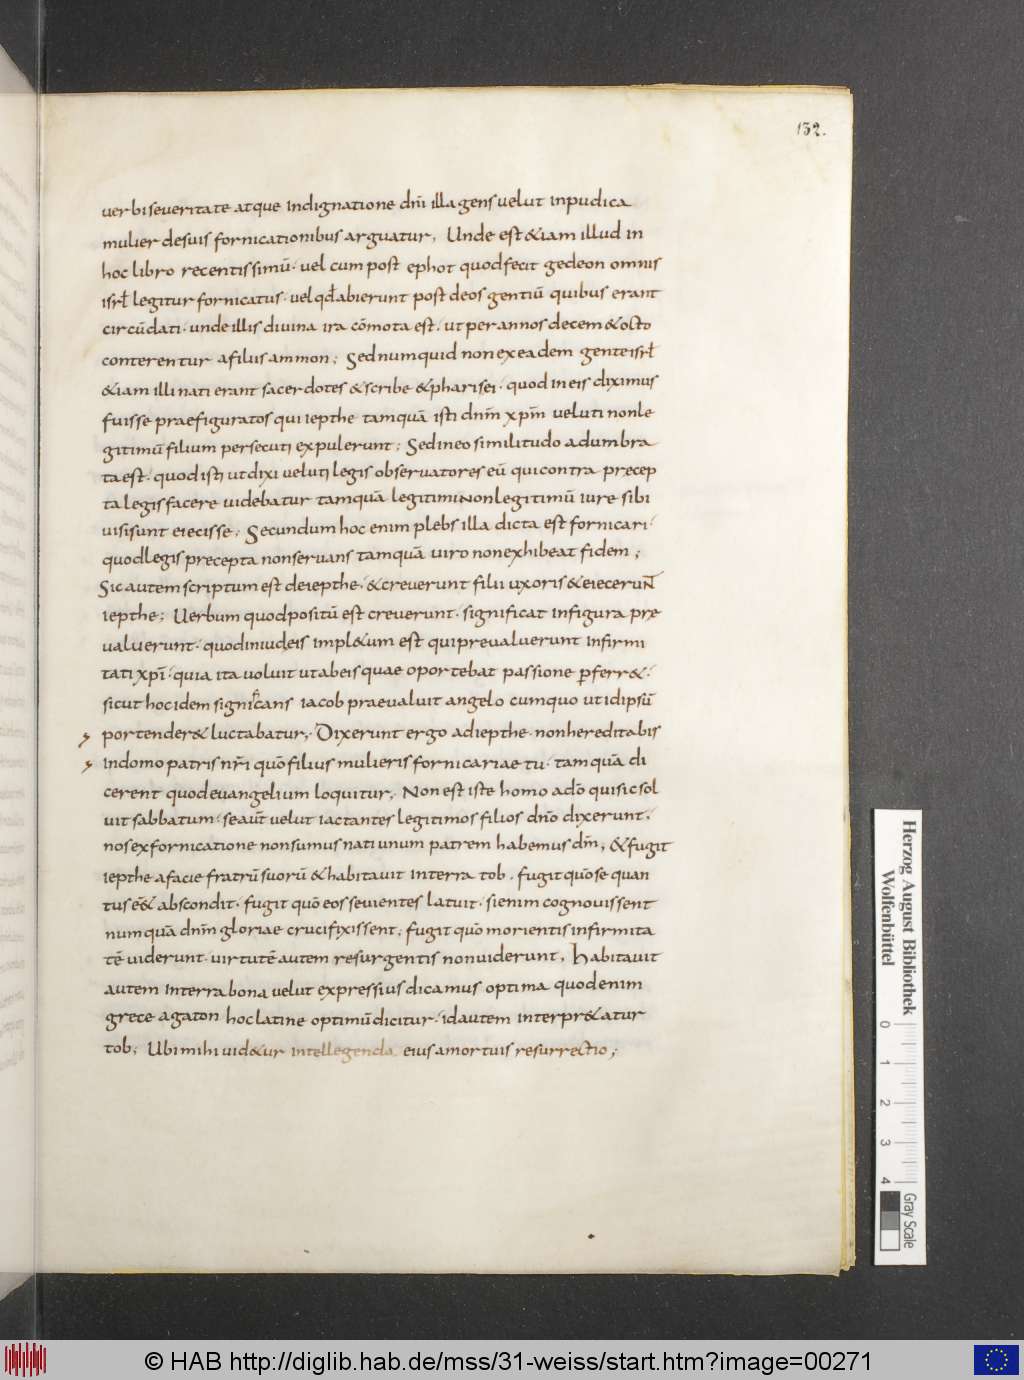 132.
uerbi seueritate atque indignatione dñi illa gens uelut inpudica
mulier desuis fornicationibus arguatur, Unde est &iam illud in
hoc libro recentissimū· uel cum post ephot quod fecit gedeon omnis
isrł legitur fornicatus· uel qđ abierunt post deos gentiū quibus erant
circūdati· unde illis diuina ira cōmota est· ut per annos decem & octo
conterentur a filiis ammon; Sed numquid non ex eadem gente isrł
&iam illi nati erant sacerdotes & scribe & pharisei· quod in eis diximus
fuisse praefiguratos qui iepthe tamquā isti dnm̄ xpm̄ ueluti nonle
gitimū filium persecuti expulerunt; Sed in eo similitudo adumbra
ta est· quod isti ut dixi ueluti legis obseruatores eū qui contra precep
ta legis facere uidebatur tamquā legitimi Non legitimū iure sibi
uisi sunt eiecisse; Secundum hoc enim plebs illa dicta est fornicari·
quod legis precepta non seruans tamquā uiro non exhibeat fidem;
Sic autem scriptum est de iepthe· & creuerunt filii uxoris & eiecerunt
iepthe; Uerbum quod positū est creuerunt· significat in figura pre
ualuerunt· quod in iudęis impl&um est qui preualuerunt infirmi
tati xpi̅· quia ita uoluit ut ab eis quae oportebat passione ꝑferr&·
sicut hoc idem significans iacob praeualuit angelo cum quo ut id ipsū
portender& luctabatur, Dixerunt ergo ad iepthe· non hereditabis
in domo patris nr̄i quō filius mulieris fornicariae tu· tamquā di
cerent quod euangelium loquitur, Non est iste homo a dō qui sic sol
uit sabbatum· se aut̄ uelut iactantes legitimos filios dn̄o dixerunt,
nos ex fornicatione non sumus nati unum patrem habemus dm̄, & fugit
iepthe a facie fratrū suorū & habitauit in terra tob. fugit quō se quan
tus e&̄ abscondit· fugit quō eos seuientes latuit· si enim cognouissent
numquā dnm̄ gloriae crucifixissent; fugit quō morientis infirmita
tē uiderunt· uirtutē autem resurgentis non uiderunt, Habitauit
autem in terra bona uelut expressius dicamus optima quod enim
grece agaton hoc latine optimū dicitur· id autem interpr&atur
tob; Ubi mihi uid&ur intellegenda eius a mortuis resurrectio;
Herzog August Bibliothek
Wolfenbüttel
0 1 2 3 4
Gray Scale
© HAB http://diglib.hab.de/mss/31-weiss/start.htm?image=00271